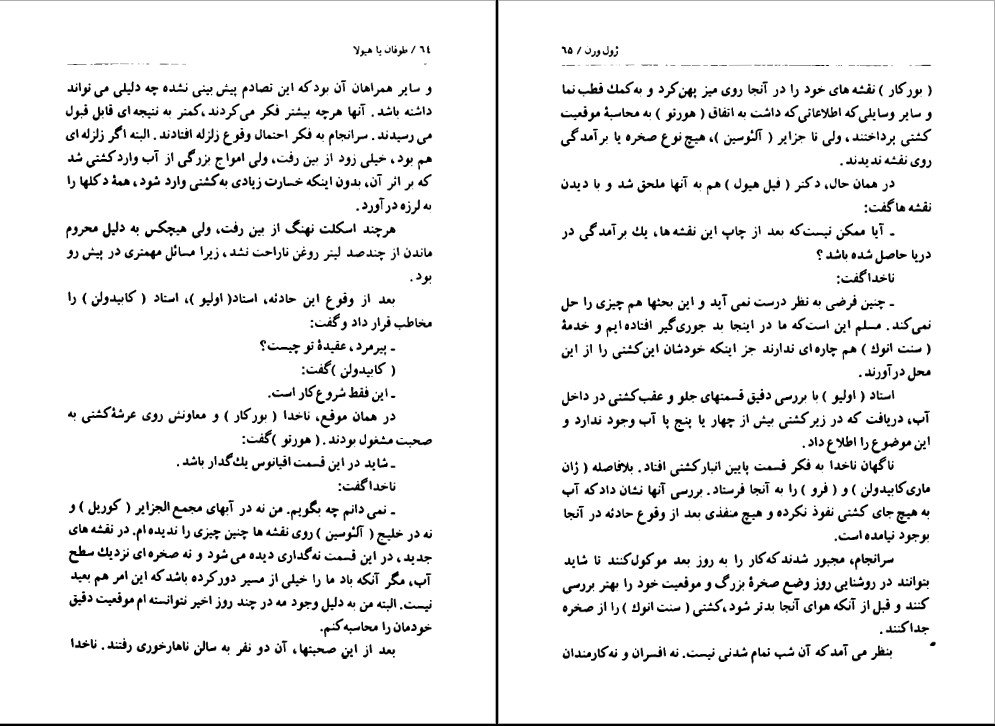 ٦٤ / طوفان با هیولا
و سایر همراهان آن بود که این تصادم پیش بینی نشده چه دلیلی می تواند
داشته باشد . آنها هرچه بیشتر فکر می کردند، کمتر به نتیجه ای قابل قبول
می رسیدند . سرانجام به فکر احتمال وقوع زلزله افتادند . البته اگر زلزله ای
هم بود ، خیلی زود از بین رفت، ولی امواج بزرگی از آب وارد کشتی شد
که بر اثر آن، بدون اینکه خسارت زیادی به کشتی وارد شود ، همۀ دکلها را
به لرزه در آورد .
هرچند اسکلت نهنگ از بین رفت، ولی هیچکس به دلیل محروم
ماندن از چندصد لیتر روغن ناراحت نشد ، زیرا مسائل مهمتری در پیش رو
بود .
بعد از وقوع این حادثه، استاد( اولیو )، استاد ( کابیدولن ) را
مخاطب قرار داد و گفت:
ـ پیرمرد ، عقیدۀ تو چیست؟
( کابیدولن )گفت:
ـ این فقط شروع کار است.
در همان موقع، ناخدا ( بورکار ) و معاونش روی عرشۀ کشتی به
صحبت مشغول بودند . ( هورتو )گفت:
ـ شاید در این قسمت اقیانوس یک گدار باشد .
ناخدا گفت:
ـ نمی دانم چه بگویم. من نه در آبهای مجمع الجزایر ( کوریل ) و
نه در خلیج ( آلئوسین ) روی نقشه ها چنین چیزی را ندیده ام. در نقشه های
جدید ، در این قسمت نه گداری دیده می شود و نه صخره ای نزدیک سطح
آب، مگر آنکه باد ما را خیلی از مسیر دور کرده باشد که این امر هم بعید
نیست. البته من به دلیل وجود مه در چند روز اخیر نتوانسته ام موقعیت دقیق
خودمان را محاسبه کنم.
بعد از این صحبتها، آن دو نفر به سالن ناهارخوری رفتند . ناخدا
ژول ورن / ٦٥
( بورکار ) نقشه های خود را در آنجا روی میز پهن کرد و به کمک قطب نما
و سایر وسایلی که اطلاعاتی که داشت به اتفاق ( هورتو ) به محاسبۀ موقعیت
کشتی پرداختند ، ولی تا جزایر ( آلئوسین )، هیچ نوع صخره یا برآمدگی
روی نقشه ندیدند .
در همان حال، دکتر ( فیل هیول ) هم به آنها ملحق شد و با دیدن
نقشه ها گفت:
ـ آیا ممکن نیست که بعد از چاپ این نقشه ها، یک برآمدگی در
دریا حاصل شده باشد ؟
ناخدا گفت:
ـ چنین فرضی به نظر درست نمی آید و این بحثها هم چیزی را حل
نمی کند . مسلم این است که ما در اینجا بد جوری گیر افتاده ایم و خدمۀ
( سنت انوک ) هم چاره ای ندارند جز اینکه خودشان این کشتی را از این
محل در آورند .
استاد ( اولیو ) با بررسی دقیق قسمتهای جلو و عقب کشتی در داخل
آب، دریافت که در زیر کشتی بیش از چهار یا پنج پا آب وجود ندارد و
این موضوع را اطلاع داد .
ناگهان ناخدا به فکر قسمت پایین انبار کشتی افتاد . بلافاصله ( ژان
ماری کابیدولن ) و ( فرو ) را به آنجا فرستاد . بررسی آنها نشان داد که آب
به هیچ جای کشتی نفوذ نکرده و هیچ منفذی بعد از وقوع حادثه در آنجا
بوجود نیامده است.
سرانجام، مجبور شدند که کار را به روز بعد موکول کنند تا شاید
بتوانند در روشنایی روز وضع صخرۀ بزرگ و موقعیت خود را بهتر بررسی
کنند و قبل از آنکه هوای آنجا بدتر شود ، کشتی ( سنت انوک ) را از صخره
جدا کنند .
بنظر می آمد که آن شب تمام شدنی نیست. نه افسران و نه کارمندان